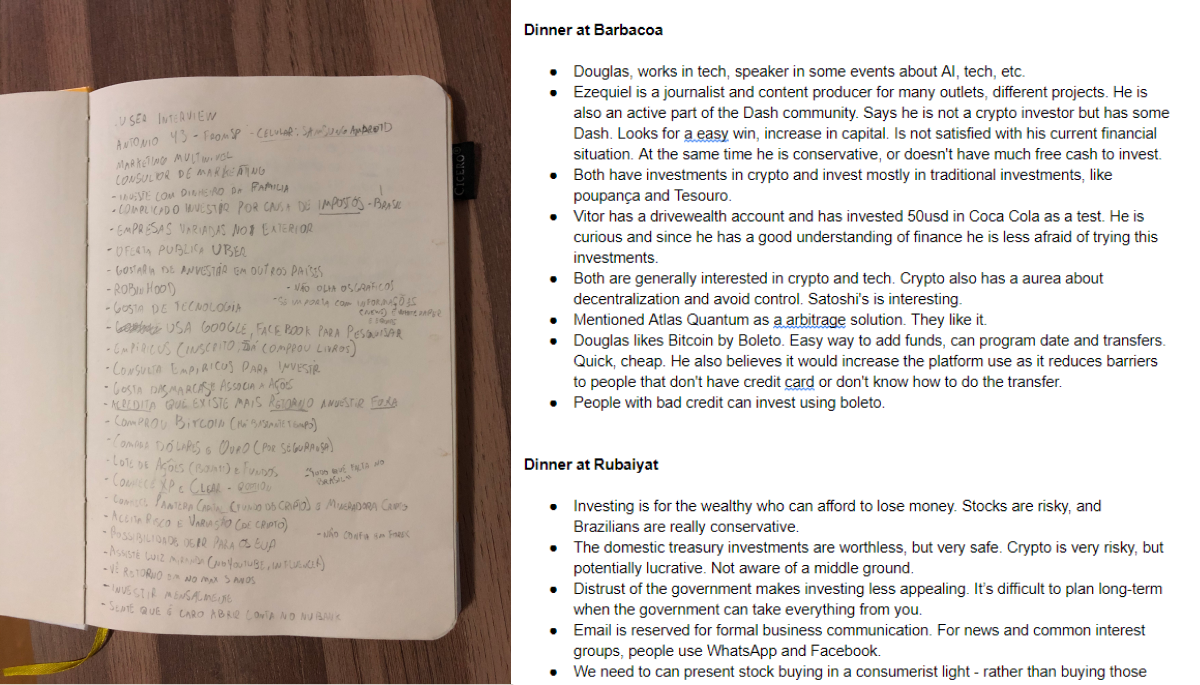 USER INTERVIEW
ANTONIO 43 - FROM SP - CELULAR: SAMSUNG ANDROID
MARKETING MULTINIVEL
CONSULTOR DE MARKETING
- INVESTE COM DINHEIRO DA FAMILIA
- COMPLICADO INVESTIR POR CAUSA DE IMPOSTOS - BRASIL
- EMPRESAS VARIADAS NO EXTERIOR
- OFERTA PUBLICA UBER
- GOSTARIA DE INVESTIR EM OUTROS PAÍSES
- ROBINHOOD
- NÃO OLHA OS GRÁFICOS
- GOSTA DE TECNOLOGIA
- SE IMPORTA COM INFORMAÇÕES
(NEWS) E
- USA GOOGLE, FACEBOOK PARA PESQUISAR
- EMPIRICUS (INSCRITO, COMPROU LIVROS)
- CONSULTA EMPIRICUS PARA INVESTIR
- GOSTA DAS MARCAS ASSOCIA A AÇÕES
- ACREDITA QUE EXISTE MAIS RETORNO INVESTIR FORA
- COMPROU BITCOIN (HÁ BASTANTE TEMPO)
- DÓLARES E OURO (POR SEGURANSA)
- LOTE DE AÇÕES E FUNDOS
- CONHECE XP E CLEAR - RICO
- CONHECE PANTERA CAPITAL (FUNDO DE CRIPTO) E MINERADORA
- ACEITA RISCO E VARIAÇÃO (DE CRIPTO)
- POSSIBILIDADE DE IR PARA OS EUA
- NÃO CONFIA EM FOREX
- ASSISTE LUIZ (NO YOUTUBE, INFLUENCER)
- VÊ RETORNO EM NO MAX 5 ANOS
- INVESTIR MENSALMENTE
- SENTE QUE É CARO ABRIR CONTA NO NUBANK
CICERO
Dinner at Barbacoa
● Douglas, works in tech, speaker in some events about AI, tech, etc.
● Ezequiel is a journalist and content producer for many outlets, different projects. He is
also an active part of the Dash community. Says he is not a crypto investor but has some
Dash. Looks for a easy win, increase in capital. Is not satisfied with his current financial
situation. At the same time he is conservative, or doesn't have much free cash to invest.
● Both have investments in crypto and invest mostly in traditional investments, like
poupança and Tesouro.
● Vitor has a drivewealth account and has invested 50usd in Coca Cola as a test. He is
curious and since he has a good understanding of finance he is less afraid of trying this
investments.
● Both are generally interested in crypto and tech. Crypto also has a aurea about
decentralization and avoid control. Satoshi's is interesting.
● Mentioned Atlas Quantum as a arbitrage solution. They like it.
● Douglas likes Bitcoin by Boleto. Easy way to add funds, can program date and transfers.
Quick, cheap. He also believes it would increase the platform use as it reduces barriers
to people that don't have credit card or don't know how to do the transfer.
● People with bad credit can invest using boleto.
Dinner at Rubaiyat
● Investing is for the wealthy who can afford to lose money. Stocks are risky, and
Brazilians are really conservative.
● The domestic treasury investments are worthless, but very safe. Crypto is very risky, but
potentially lucrative. Not aware of a middle ground.
● Distrust of the government makes investing less appealing. It's difficult to plan long-term
when the government can take everything from you.
● Email is reserved for formal business communication. For news and common interest
groups, people use WhatsApp and Facebook.
● We need to can present stock buying in a consumerist light - rather than buying those